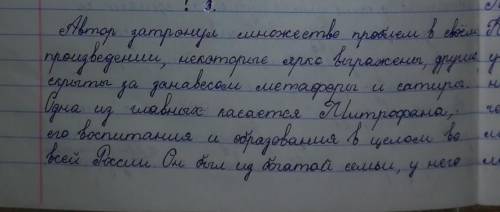 3.
Автор затронул множество проблем в своём
произведении, некоторые ярко выражены, другие
скрыты за занавесом метафоры и сатиры.
Одна из главных касается Митрофана,
его воспитания и образования в целом во
всей России Он был из богатой семьи, у него